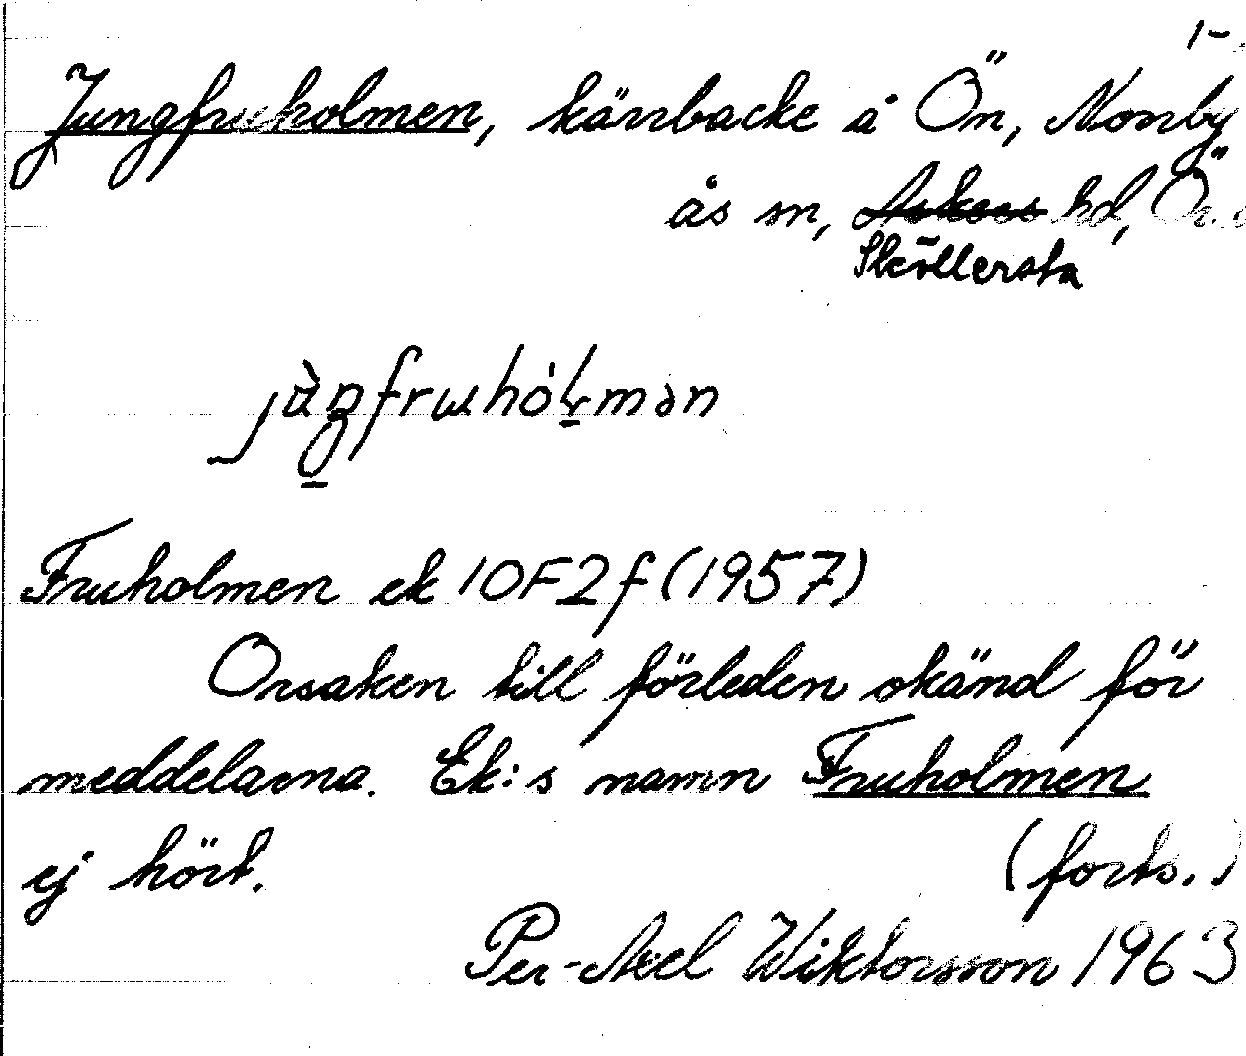 1-
Jungfruholmen, kärrbacke å Ön, Norrby
ås sn, Askers hd, Ör.
Sköllersta
Fruholmen ek 10F2f (1957)
Orsaken till förleden okänd för
meddelarna. Ek:s namn Fruholmen
ej hört.
(forts.)
Per-Axel Wiktorsson 1963